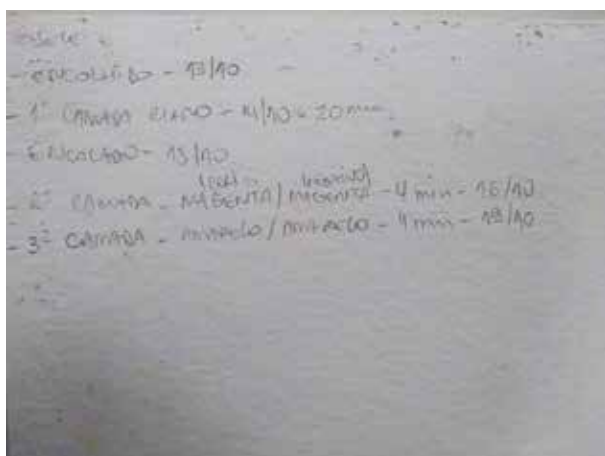 - ENCOLADO - 13/10
- 1ª CAMADA CIANO - 14/10 - 20 min
- ENCOLADO - 15/10
- 2ª CAMADA - MAGENTA / MAGENTA - 4 min - 16/10
- 3ª CAMADA - AMARELO / AMARELO - 4 min - 19/10